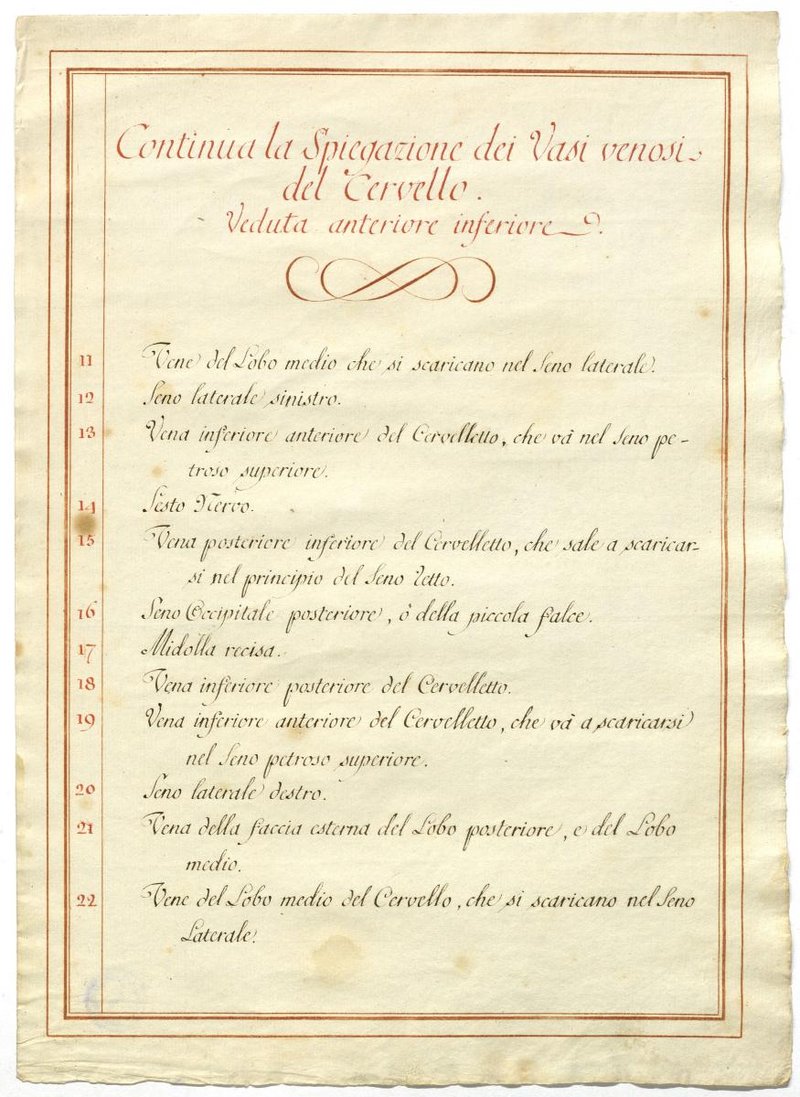 Continua la Spiegazione dei Vasi venosi
del Cervello.
Veduta anteriore inferiore
11 Vene del Lobo medio che si scaricano nel Seno laterale.
12 Seno laterale sinistro.
13 Vena inferiore anteriore del Cervelletto, che và nel Seno pe-
troso superiore.
14 Sesto Nervo.
15 Vena posteriore inferiore del Cervelletto, che sale a scaricar-
si nel principio del Seno retto.
16 Seno Occipitale posteriore, ò della piccola falce.
17 Midolla recisa.
18 Vena inferiore posteriore del Cervelletto.
19 Vena inferiore anteriore del Cervelletto, che và a scaricarsi
nel Seno petroso superiore.
20 Seno laterale destro.
21 Vena della faccia esterna del Lobo posteriore, e del Lobo
medio.
22 Vene del Lobo medio del Cervello, che si scaricano nel Seno
Laterale.